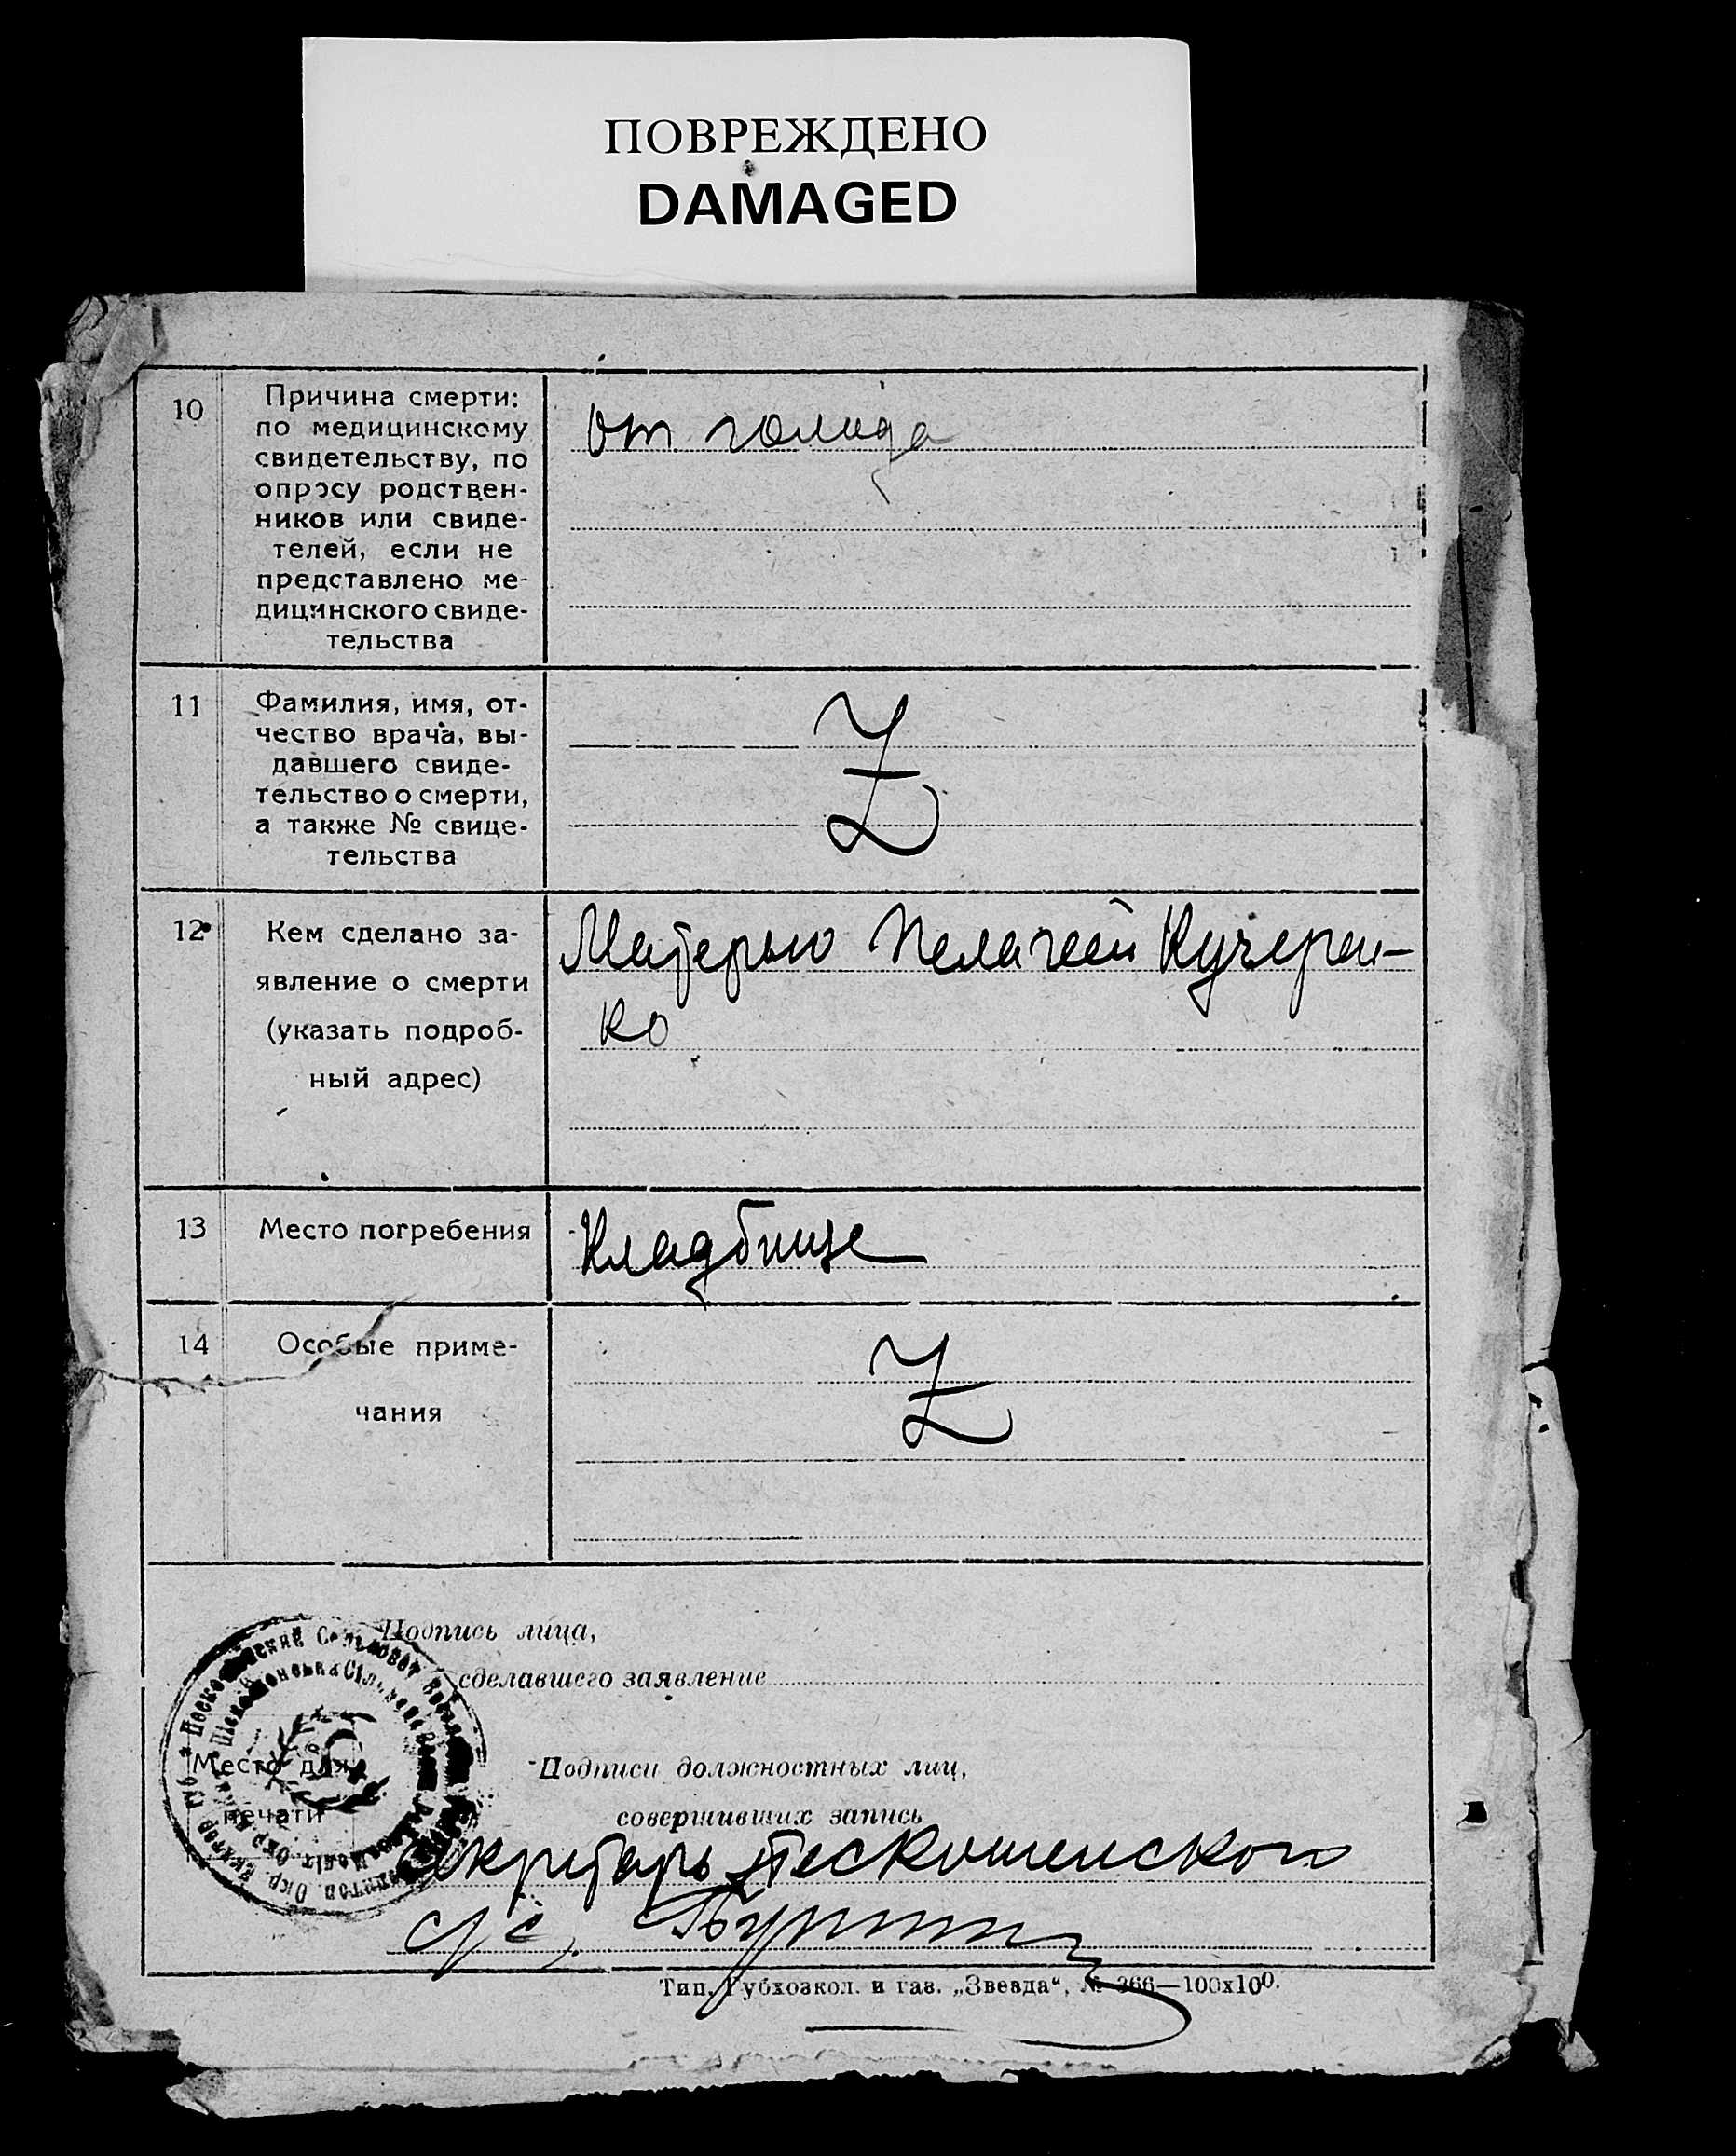 ПОВРЕЖДЕНО
DAMAGED
10
Причина смерти:
по медицинскому
свидетельству, по
опросу родствен-
ников или свиде-
телей, если не
представлено ме-
дицинского свиде-
тельства
от голода
11
Фамилия, имя, от-
чество врача, вы-
давшего свиде-
тельство о смерти,
а также № свиде-
тельства
Z
12
Кем сделано за-
явление о смерти
(указать подроб-
ный адрес)
Матерью Пелагеей Кучерен-
ко
13
Место погребения
Кладбище
14
Особые приме-
чания
Z
Подпись лица,
сделавшего заявление
Место для
печати
Подписи должностных лиц,
совершивших запись
Секретарь Пескошенского
с/с,
Тип. Губхозкол. и газ. „Звезда“, № 366—100х100.